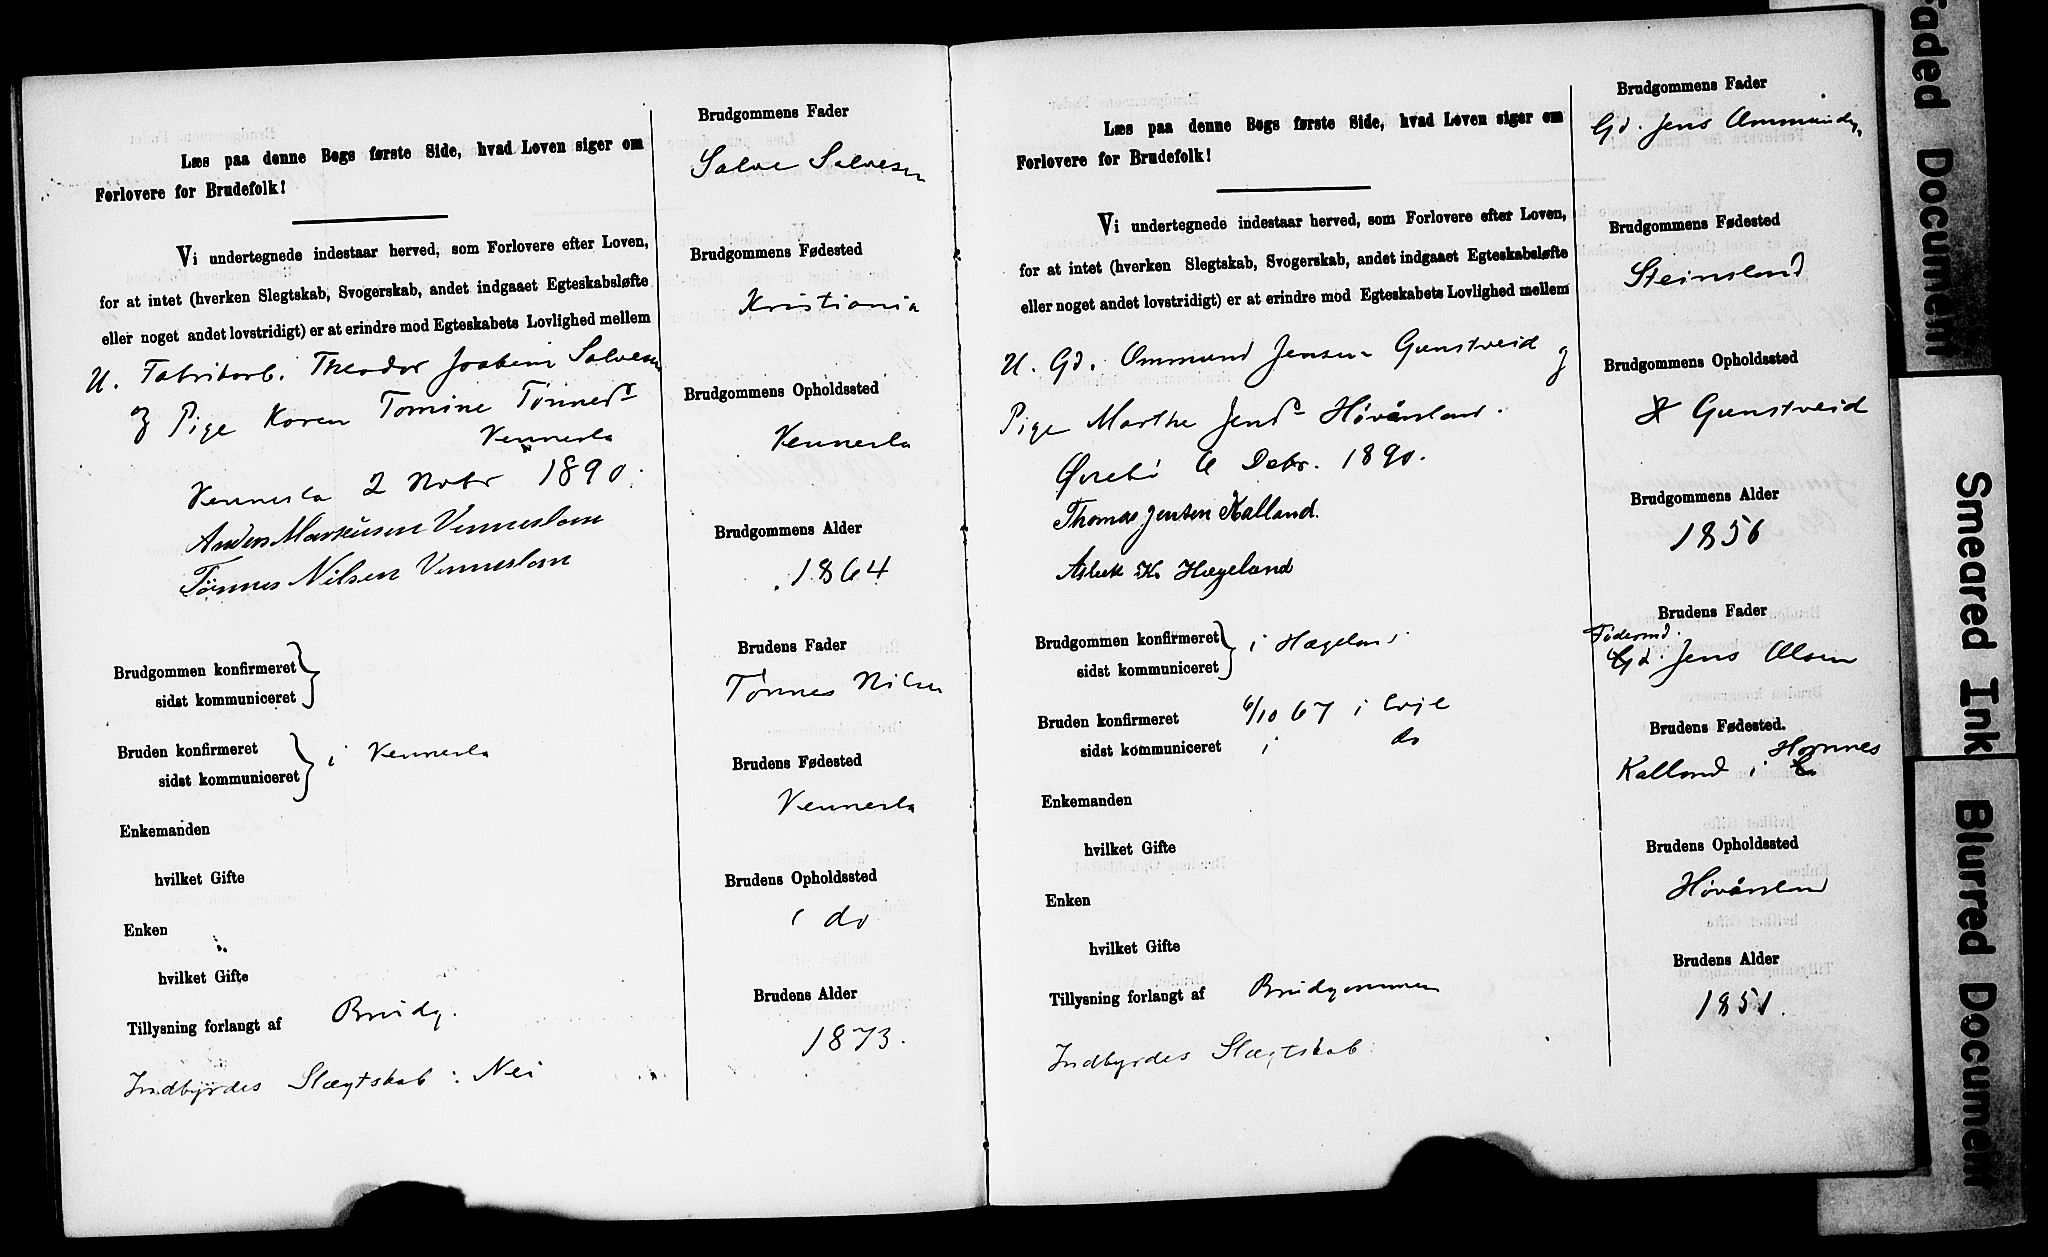 Læs paa denne Bogs første Side, hvad Loven siger om
Forlovere for Brudefolk!
Vi undertegnede indestaar herved, som Forlovere efter Loven,
for at intet (hverken Slegtskab, Svogerskab, andet indgaaet Egteskabsløfte
eller noget andet lovstridigt) er at erindre mod Egteskabets Lovlighed mellem
U. Fabrikarb. Theodor Joakim Salvesen
og Pige Karen Tomine Tønnesd
Vennesla
Vennesla 2 Novbr 1890.
Anders Markusen Venneslam
Tønnes Nilsen Venneslam
Brudgommen konfirmeret
sidst kommuniceret
Bruden konfirmeret
sidst kommuniceret
i Vennesla
Enkemanden
hvilket Gifte
Enken
hvilket Gifte
Tillysning forlangt af Brudg.
Indbyrdes Slægtskab : Nei
Brudgommens Fader
Salve Salvesen
Brudgommens Fødested
Kristiania
Brudgommens Opholdssted
Vennesla
Brudgommens Alder
1864
Brudens Fader
Tønnes Nilsen
Brudens Fødested
Vennesla
Brudens Opholdssted
i do
Brudens Alder
1873.
Læs paa denne Bogs første Side, hvad Loven siger om
Forlovere for Brudefolk!
Vi undertegnede indestaar herved, som Forlovere efter Loven,
for at intet (hverken Slegtskab, Svogerskab, andet indgaaet Egteskabsløfte
eller noget andet lovstridigt) er at erindre mod Egteskabets Lovlighed mellem
U. Gd. Ommund Jensen Gunstveid og
Pige Marthe Jensd Høvåsland.
Øvrebø 6 Debr. 1890.
Thomas Jensen Kalland.
Asbek K. Hægeland
Brudgommen konfirmeret
sidst kommuniceret
i Hægeland
Bruden konfirmeret 6/10 67 i Evje
sidst kommuniceret i do
Enkemanden
hvilket Gifte
Enken
hvilket Gifte
Tillysning forlangt af Brudgommen
Indbyrdes Slægtskab
Brudgommens Fader
Gd. Jens Ommunds.
Brudgommens Fødested
Steinsland
Brudgommens Opholdssted
Gunstveid
Brudgommens Alder
1856
Brudens Fader
Føderaad.
Gd. Jens Olsen
Brudens Fødested.
Hornnes
Kalland i
Brudens Opholdssted
Høvåsland
Brudens Alder
1851.
Faded Document
Smeared Ink
Blurred Document